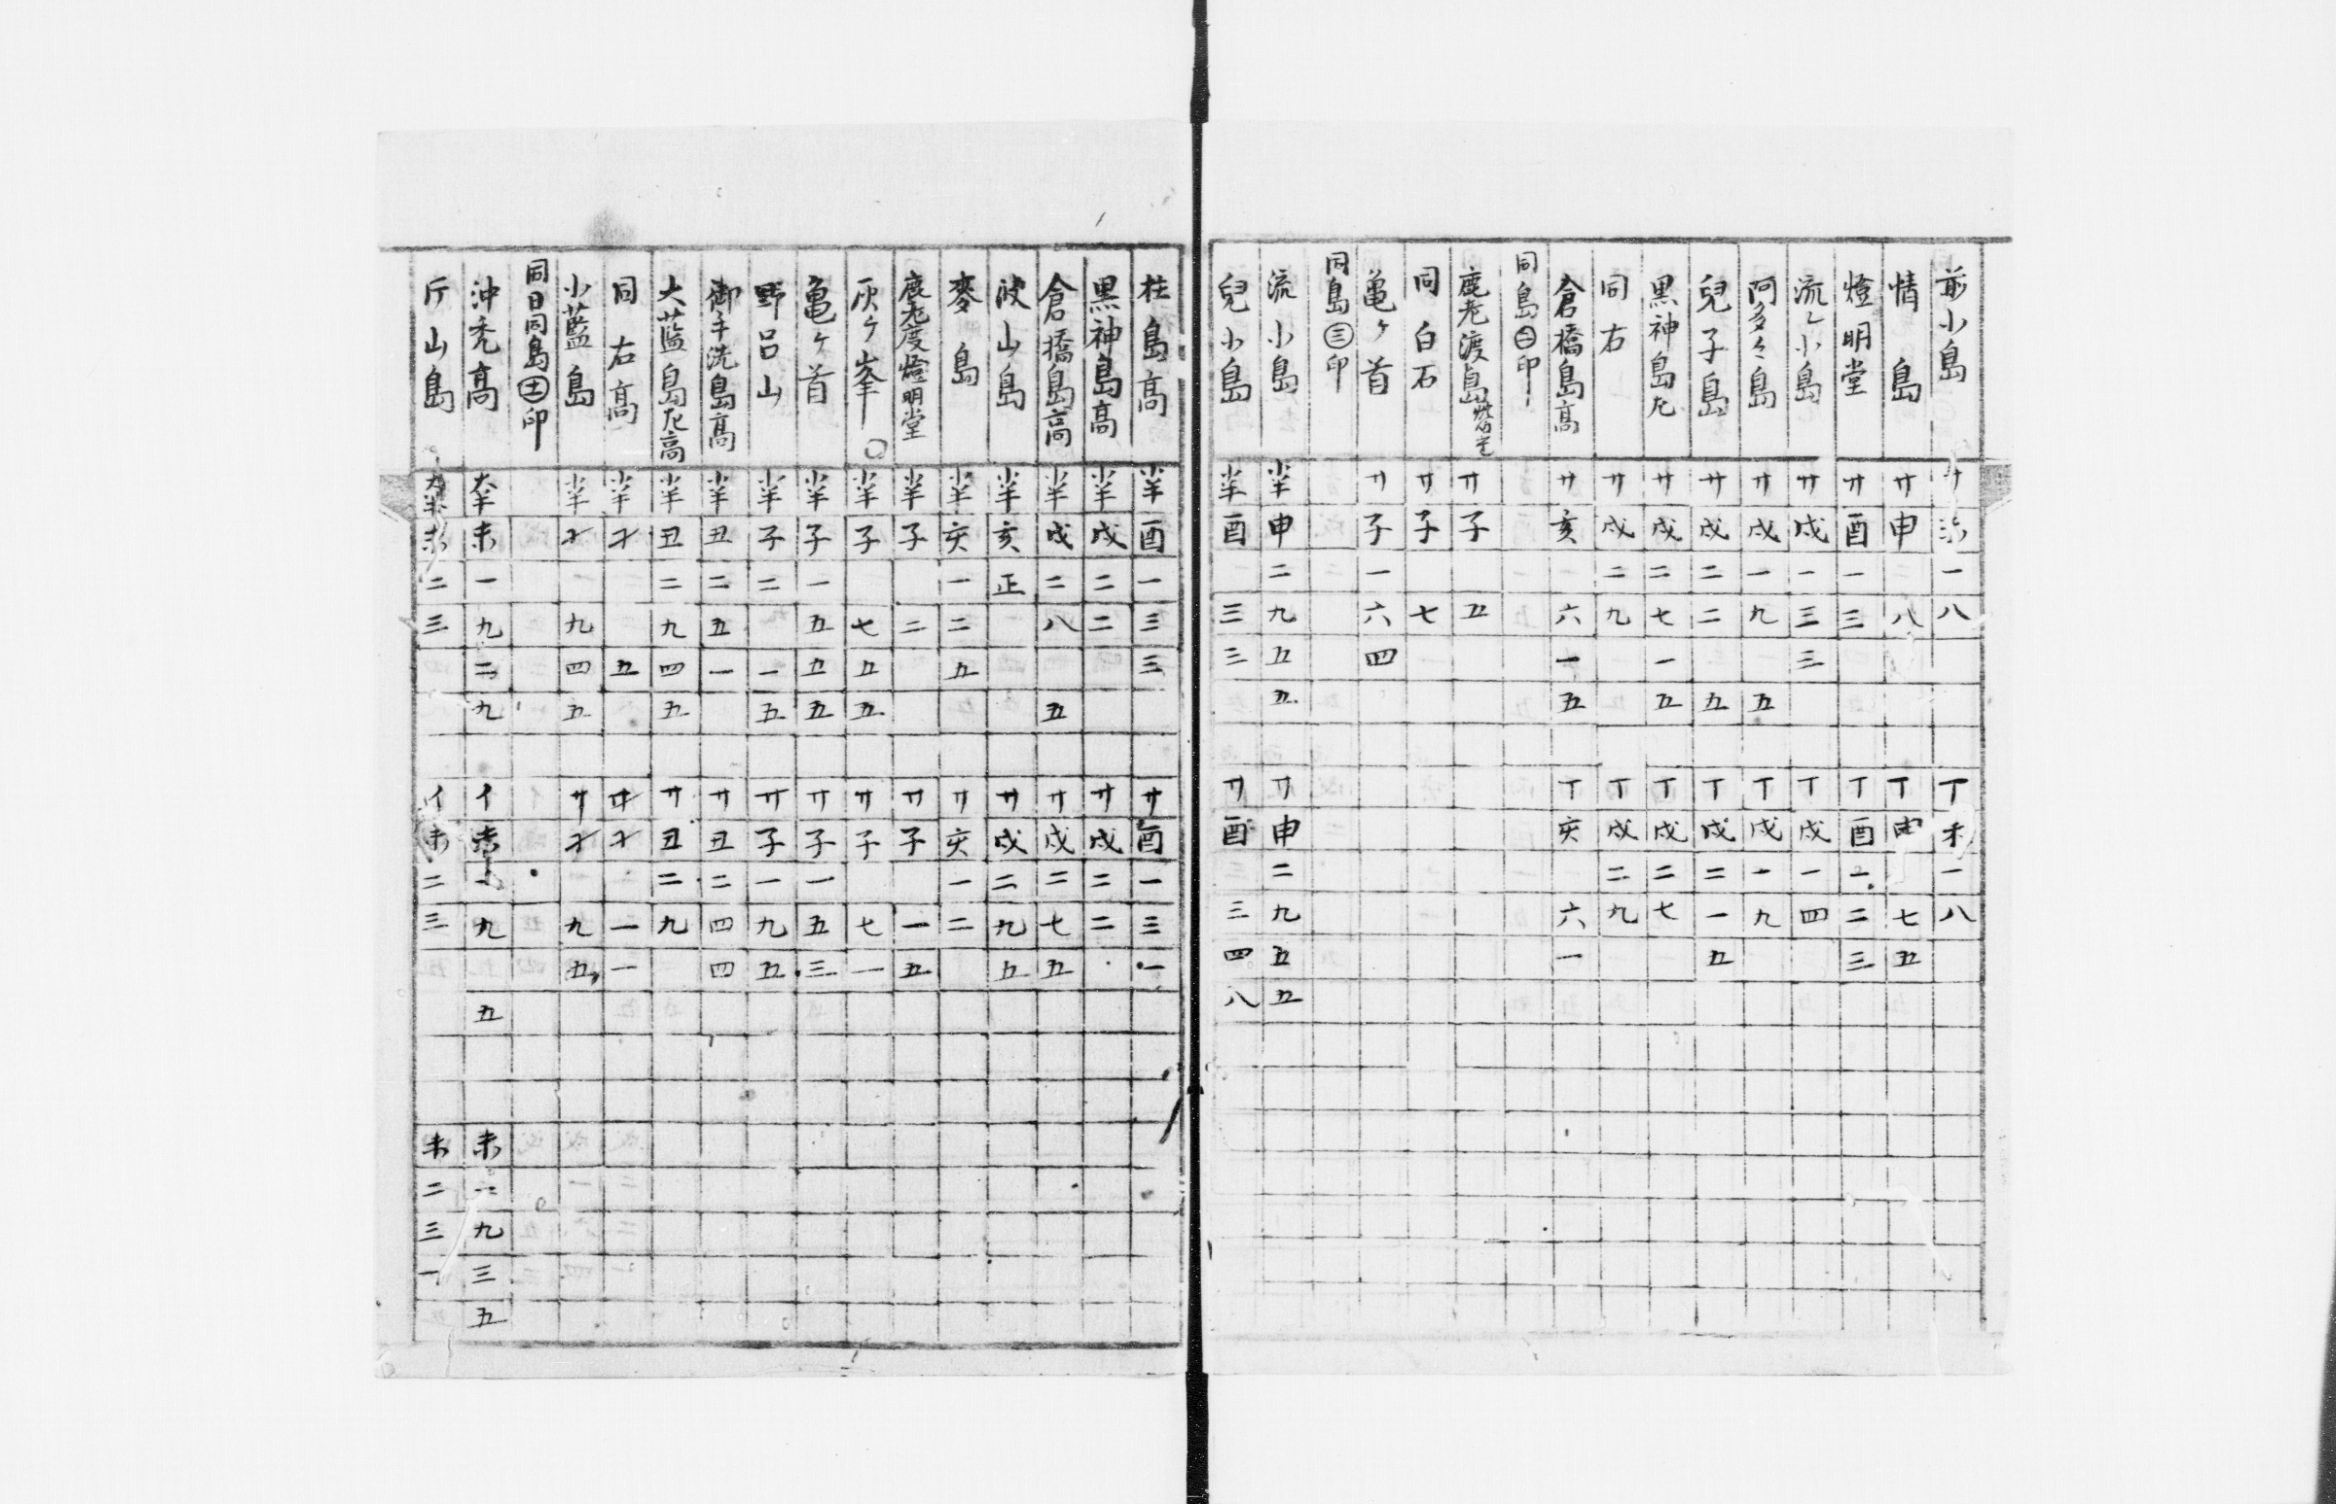 前小島 廾 未 一 八 丁 未 一 八
情島 廾 申 八 丁 申 七 五
燈明堂 廾 酉 一 三 丁 酉 一 二 三
流レ小島 廾 戌 一 三 三 丁 戌 一 四
阿多々島 廾 戌 一 九 五 丁 戌 一 九
兒子島 廾 戌 二 二 五 丁 戌 二 一 五
黒神島尤 廾 戌 二 七 一 五 丁 戌 二 七
同右 廾 戌 二 九 丁 戌 二 九
倉橋島高 廾 亥 六 一 五 丁 亥 六 一
同島㊁印
鹿老渡島 廾 子 五
同白石 廾 子 七
亀ヶ首 廾 子 一 六 四
同島㊂印
流小島 半 申 二 九 五 五 廾 申 二 九 五 五
兒小島 半 酉 三 三 廾 酉 三 四 八
柱島高 半 酉 一 三 三 廾 酉 一 三 一
黒神島高 半 戌 二 二 廾 戌 二 二
倉橋島高 半 戌 二 八 五 廾 戌 二 七 五
波山島 半 亥 正 廾 戌 二 九 五
麥島 半 亥 一 二 五 廾 亥 一 二
鹿老度燈明堂 半 子 二 廾 子 一 五
灰ヶ峯 半 子 七 五 五 廾 子 七 一
亀ヶ首 半 子 一 五 五 五 廾 子 一 五 三
野呂山 半 子 二 一 五 廾 子 一 九 五
御手洗島高 半 丑 二 五 一 廾 丑 二 四 四
大藍島尤高 半 丑 二 九 四 五 廾 丑 二 九
同右高 半 才 五 廾 才 一 一
小藍島 半 才 九 四 五 廾 才 九 五
同日同島㊏印
沖禿高 大半 未 一 九 二 九 イ 未 一 九 五 未 一 九 三 五
斤山島 大半 未 二 三 イ 未 二 三 未 二 三 一